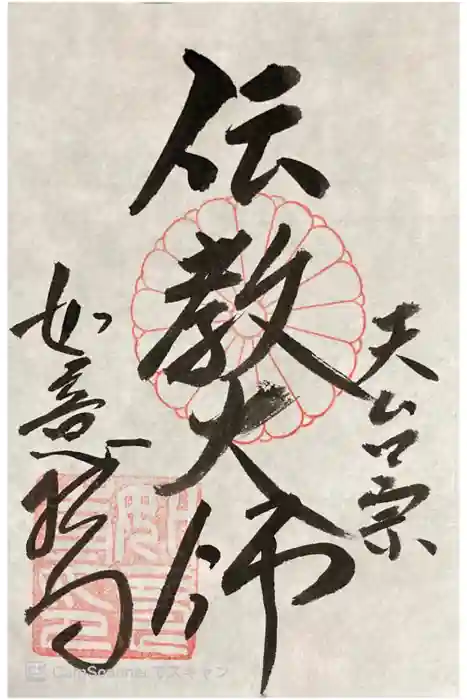 天台宗
伝教大師
如意
CamScannerでスキャン